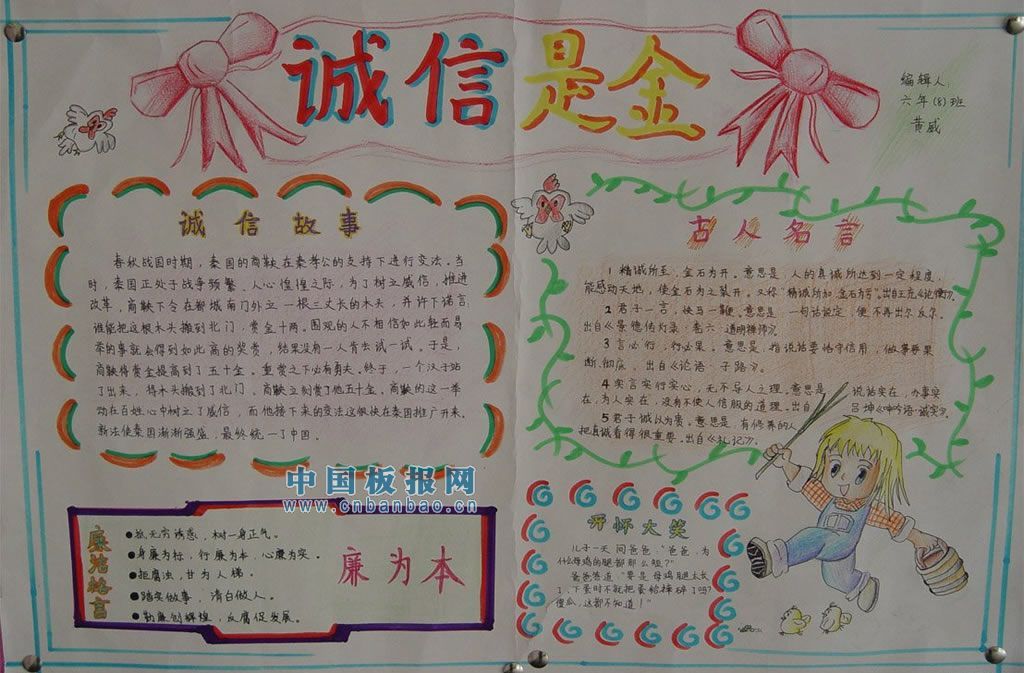 诚信是金
编辑人:
六年(8)班
黄威
诚信故事
春秋战国时期，秦国的商鞅在秦孝公的支持下进行变法。当
时，秦国正处于战争频繁、人心惶惶之际，为了树立威信，推进
改革，商鞅下令在都城南门外立一根三丈长的木头，并许下诺言，
谁能把这根木头搬到北门，赏金十两。围观的人不相信如此轻而易
举的事就会得到如此高的奖赏，结果没有一人肯出试一试。于是，
商鞅将赏金提高到了五十金。重赏之下必有勇夫。终于，一个汉子站
了出来，将木头搬到了北门。商鞅立刻赏了他五十金。商鞅的这一举
动在百姓心中树立了威信，而他接下来的变法这很快在秦国推广开来。
新法使秦国渐渐强盛，最终统一了中国。
古人名言
1 精诚所至，金石为开。意思是，人的真诚所达到一定程度，
能感动天地，使金石为之裂开。又称"精诚所加,金石为亏"。出自王充《论衡》。
2 君子一言，快马一鞭。意思是 一句话说定，便不再出尔反尔。
出自《景德传灯录·卷六·道明禅师》。
3 言必行，行必果。意思是，指说话要恪守信用，做事要果
断、彻底。出自《论语·子路》。
4 实言实行实心，无不孚人之理。意思是 说话实在，办事实
在，为人实在，没有不使人信服的道理。出自 吕坤《呻吟语·诚实》。
5 君子诚以为贵。意思是，有修养的人
把真诚看得很重要。出自《礼记》。
中国板报网
www.cnbanbao.cn
廉洁格言
●抵无穷诱惑，树一身正气。
●身廉为标，行廉为本，心廉为实。
●拒腐浊，甘为人梯。
●踏实做事，清白做人。
●勤廉创辉煌，反腐促发展。
廉为本
开怀大笑
儿子一天问爸爸，"爸爸，为
什么母鸡的腿都那么短？"
爸爸答道"要是母鸡腿太长
了，下蛋时不就把蛋给摔碎了吗？
傻瓜，这都不知道！"